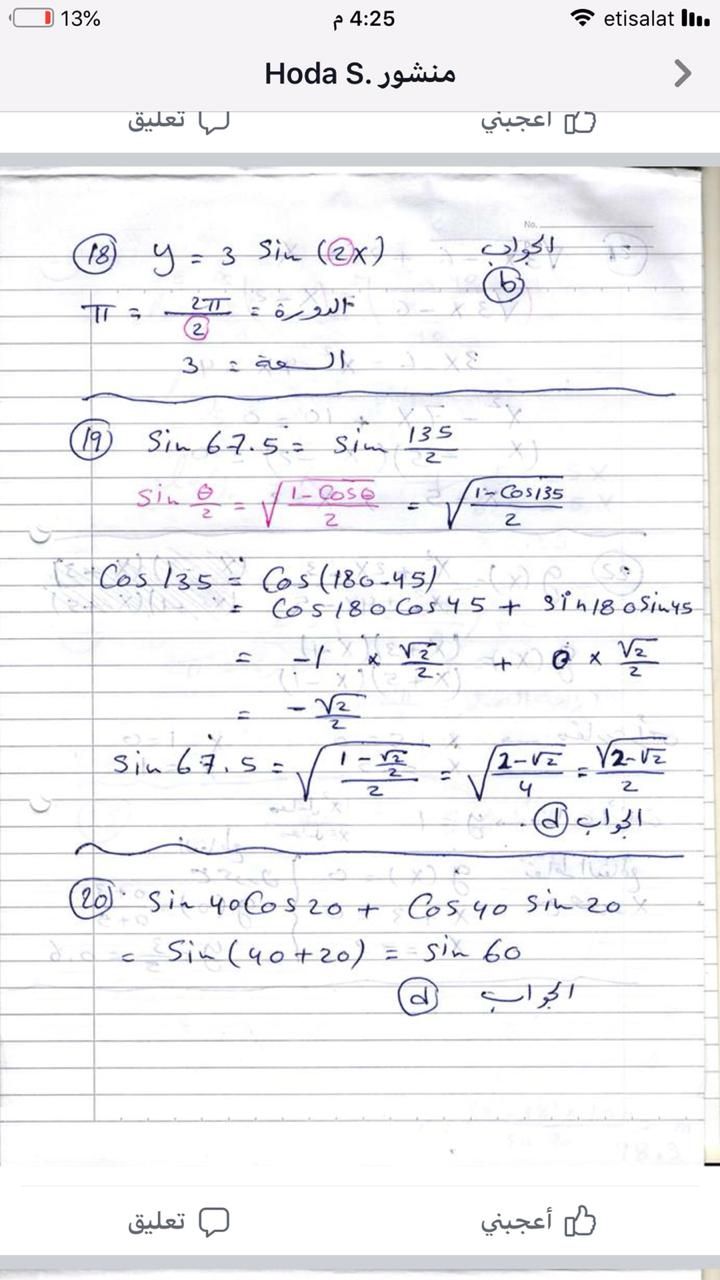 13% 4:25 م etisalat
منشور Hoda S.
أعجبني تعليق
No.
(18) y = 3 Sin (2x) الجواب (b)
الدورة = 2π/2 = π
السعة = 3
(19) Sin 67.5 = Sin 135/2
Sin θ/2 = √((1-Cosθ)/2) = √((1-Cos135)/2)
Cos 135 = Cos(180-45)
= Cos180Cos45 + Sin180Sin45
= -1 × √2/2 + 0 × √2/2
= -√2/2
Sin 67.5 = √((1-√2/2)/2) = √((2-√2)/4) = √(2-√2)/2
الجواب (d).
(20) Sin40Cos20 + Cos40 Sin20
= Sin(40+20) = Sin 60
الجواب (d)
أعجبني تعليق